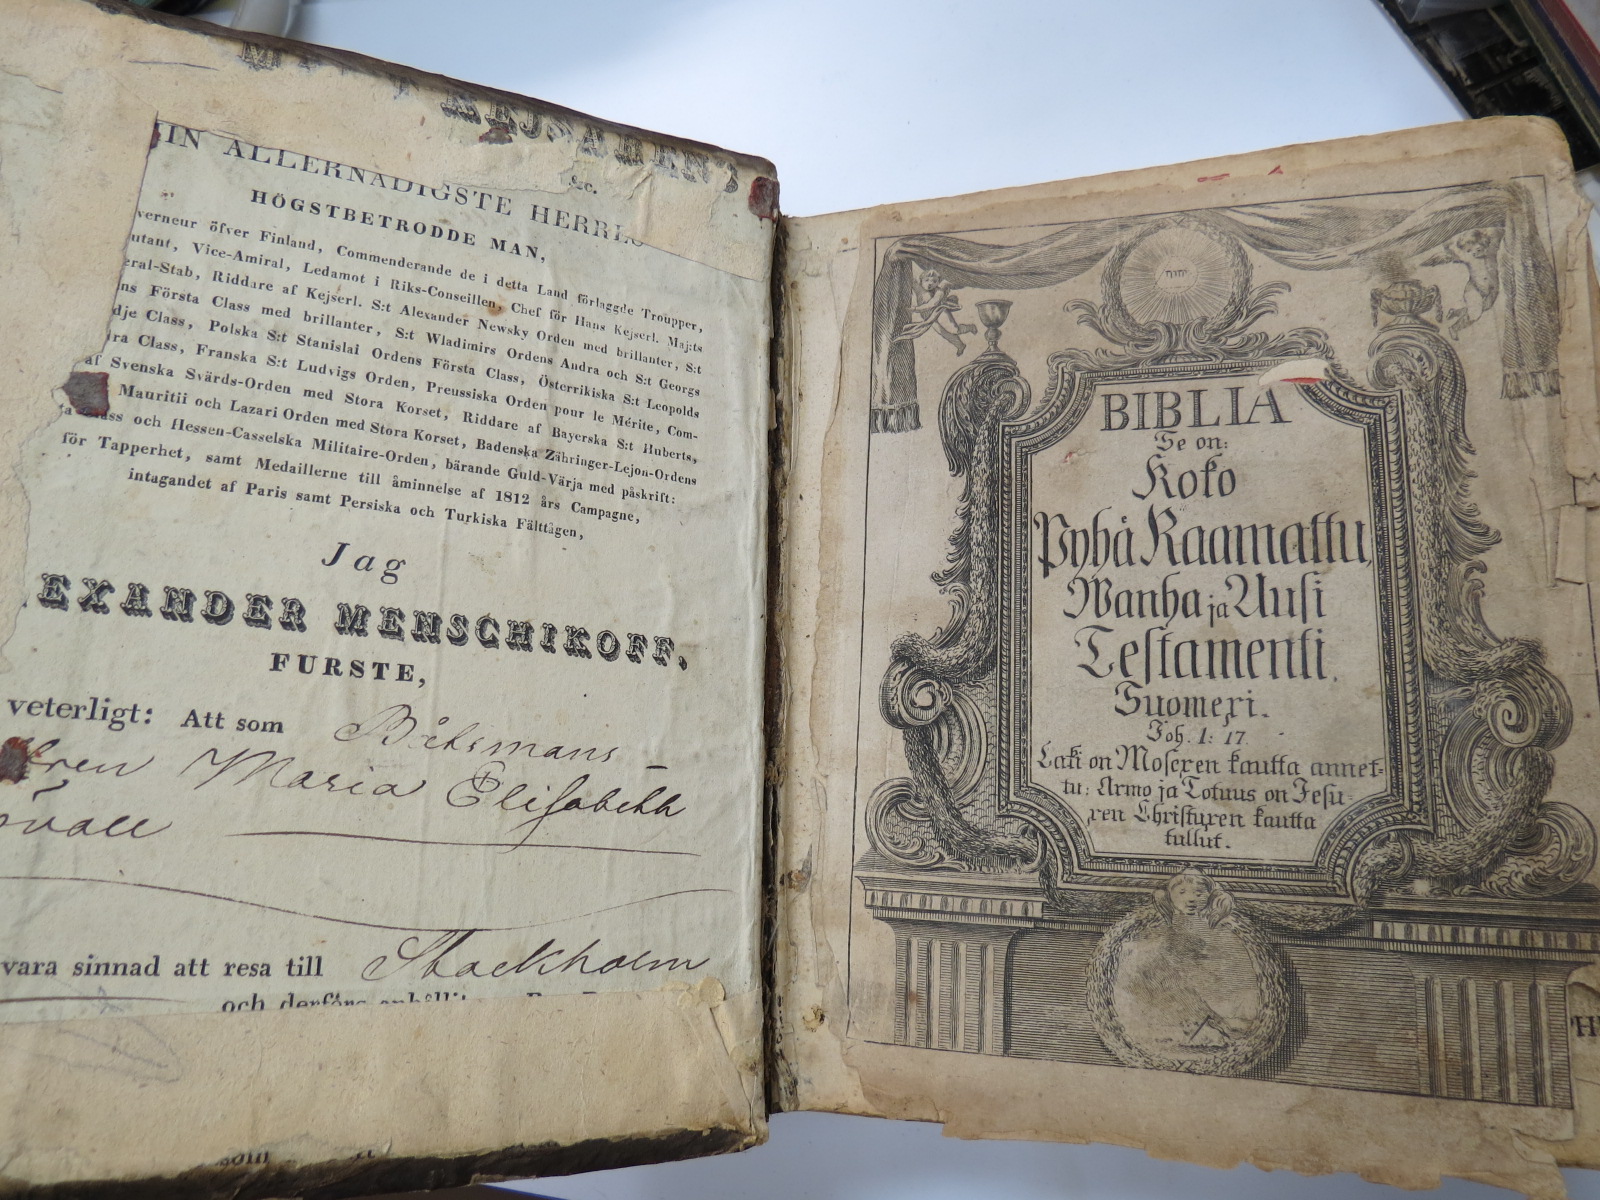 KEJSARENS
&c.
MIN ALLERNÅDIGSTE HERRES
HÖGSTBETRODDE MAN,
verneur öfver Finland, Commenderande de i detta Land förlaggde Troupper,
utant, Vice-Amiral, Ledamot i Riks-Conseillen, Chef för Hans Kejserl. Maj:ts
eral-Stab, Riddare af Kejserl. S:t Alexander Newsky Orden med brillanter, S:t
ns Första Class med brillanter, S:t Wladimirs Ordens Andra och S:t Georgs
dje Class, Polska S:t Stanislai Ordens Första Class, Österrikiska S:t Leopolds
ra Class, Franska S:t Ludvigs Orden, Preussiska Orden pour le Mérite, Com-
af Svenska Svärds-Orden med Stora Korset, Riddare af Bayerska S:t Huberts,
Mauritii och Lazari Orden med Stora Korset, Badenska Zähringer-Lejon-Ordens
Class och Hessen-Casselska Militaire-Orden, bärande Guld-Värja med påskrift:
för Tapperhet, samt Medaillerne till åminnelse af 1812 års Campagne,
intagandet af Paris samt Persiska och Turkiska Fälttågen,
Jag
EXANDER MENSCHIKOFF,
FURSTE,
veterligt: Att som Båtsmans-
Maria Elisabeth
vara sinnad att resa till Stockholm
och derföre
יהוה
BIBLIA
Se on:
Koko
Pyhä Raamattu,
Wanha ja Uusi
Testamenti.
Suomexi.
Joh. 1: 17.
Laki on Mosexen kautta annet-
tu: Armo ja Totuus on Jesu-
xen Christuxen kautta
tullut.